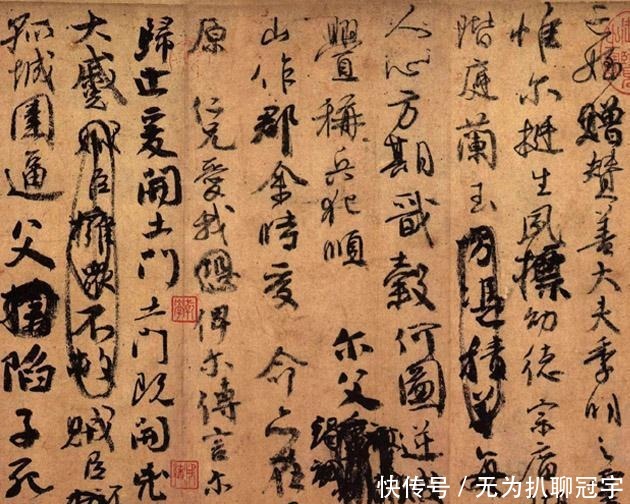 亡姪贈贊善大夫季明之
惟尔挺生夙標幼德宗廟
階庭蘭玉方憑積善每
人心方期戩穀何圖逆
釁稱兵犯順尔父
山作郡余時受命亦在
原仁兄愛我恐俾尔傳言尔
歸止爰開土門土門既開凶
大蹙賊臣擁眾不救賊臣不
孤城圍逼父陷子死
快传号／无为扒聊冠字